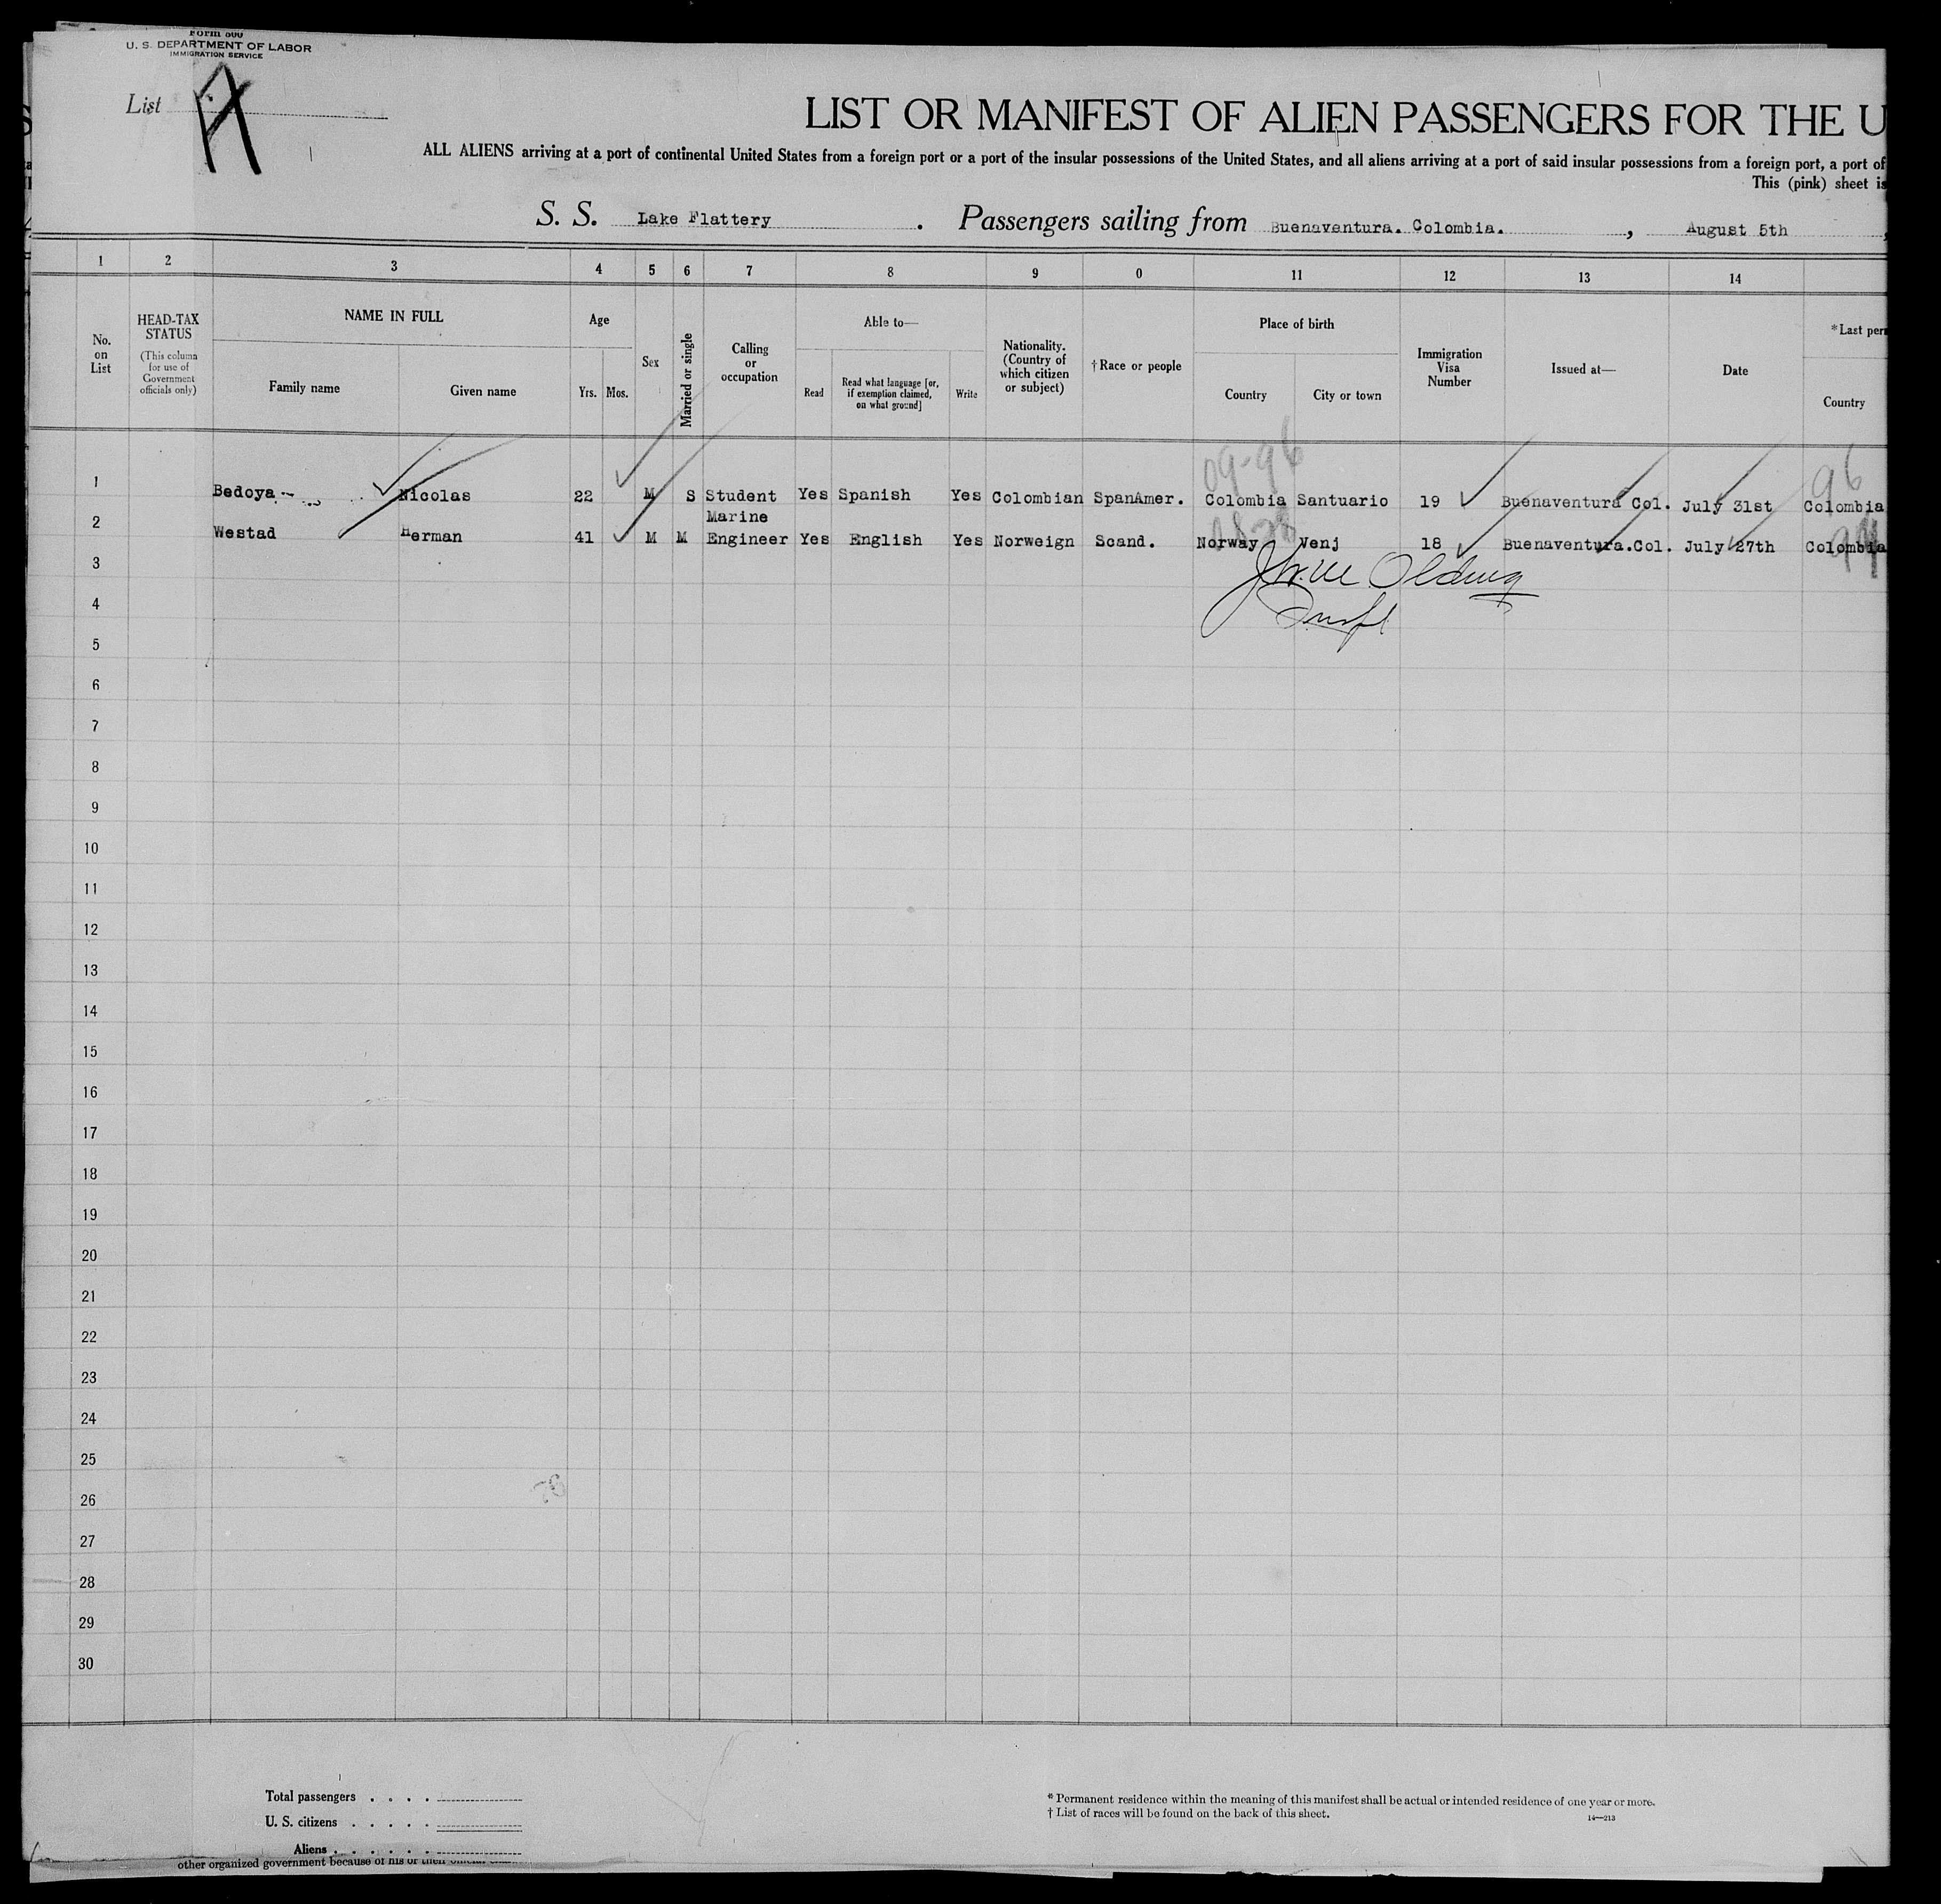 Form 500
U. S. DEPARTMENT OF LABOR
IMMIGRATION SERVICE
List A
LIST OR MANIFEST OF ALIEN PASSENGERS FOR THE U
ALL ALIENS arriving at a port of continental United States from a foreign port or a port of the insular possessions of the United States, and all aliens arriving at a port of said insular possessions from a foreign port, a port of
This (pink) sheet is
S. S. Lake Flattery . Passengers sailing from Buenaventura. Colombia. , August 5th
1 2 3 4 5 6 7 8 9 0 11 12 13 14
No. on List
HEAD-TAX STATUS
(This column for use of Government officials only)
NAME IN FULL
Family name
Given name
Age
Yrs. Mos.
Sex
Married or single
Calling or occupation
Able to—
Read
Read what language [or, if exemption claimed, on what ground]
Write
Nationality. (Country of which citizen or subject)
†Race or people
Place of birth
Country
City or town
Immigration Visa Number
Issued at—
Date
*Last per
Country
09-96
96
1 Bedoya Nicolas 22 M S Student Yes Spanish Yes Colombian SpanAmer. Colombia Santuario 19 Buenaventura Col. July 31st Colombia
2 Westad Herman 41 M M Marine Engineer Yes English Yes Norweign Scand. Norway Venj 18 Buenaventura.Col. July 27th Colombia
3
4
5
6
7
8
9
10
11
12
13
14
15
16
17
18
19
20
21
22
23
24
25
26
27
28
29
30
Total passengers . . . .
U. S. citizens . . . . .
Aliens . . . . . .
* Permanent residence within the meaning of this manifest shall be actual or intended residence of one year or more.
† List of races will be found on the back of this sheet.
14—213
other organized government because of his or their official